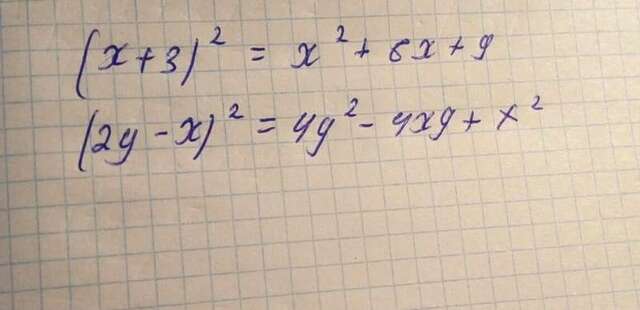 (x+3)² = x² + 6x + 9
(2y - x)² = 4y² - 4xy + x²